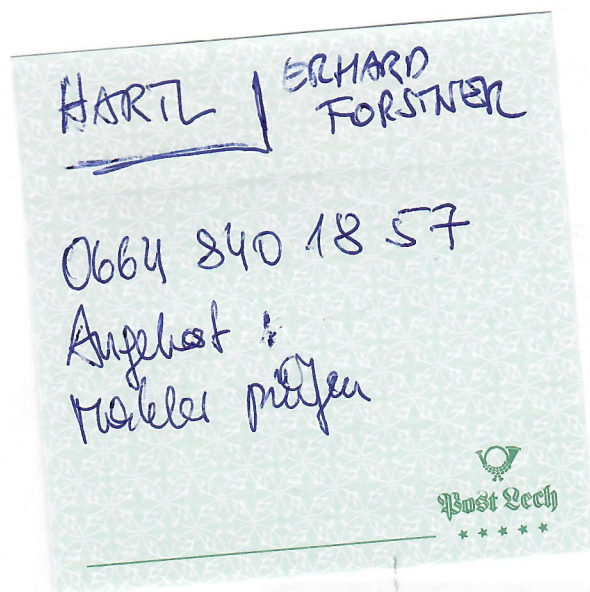 HARTL
ERHARD
FORSTNER
0664 840 18 57
Angebot :
Makler prüfen
Post Lech